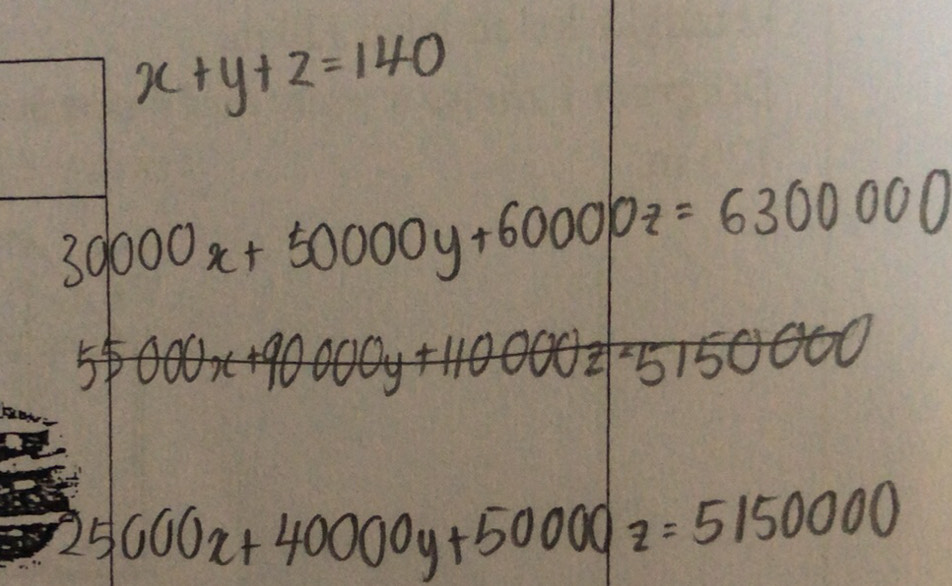 x+y+z=140
30000x+ 50000y+60000z= 6300 000
55 000x+90 000y+110 000z=5150 000
25000x+ 40000y+50000 z=5150000